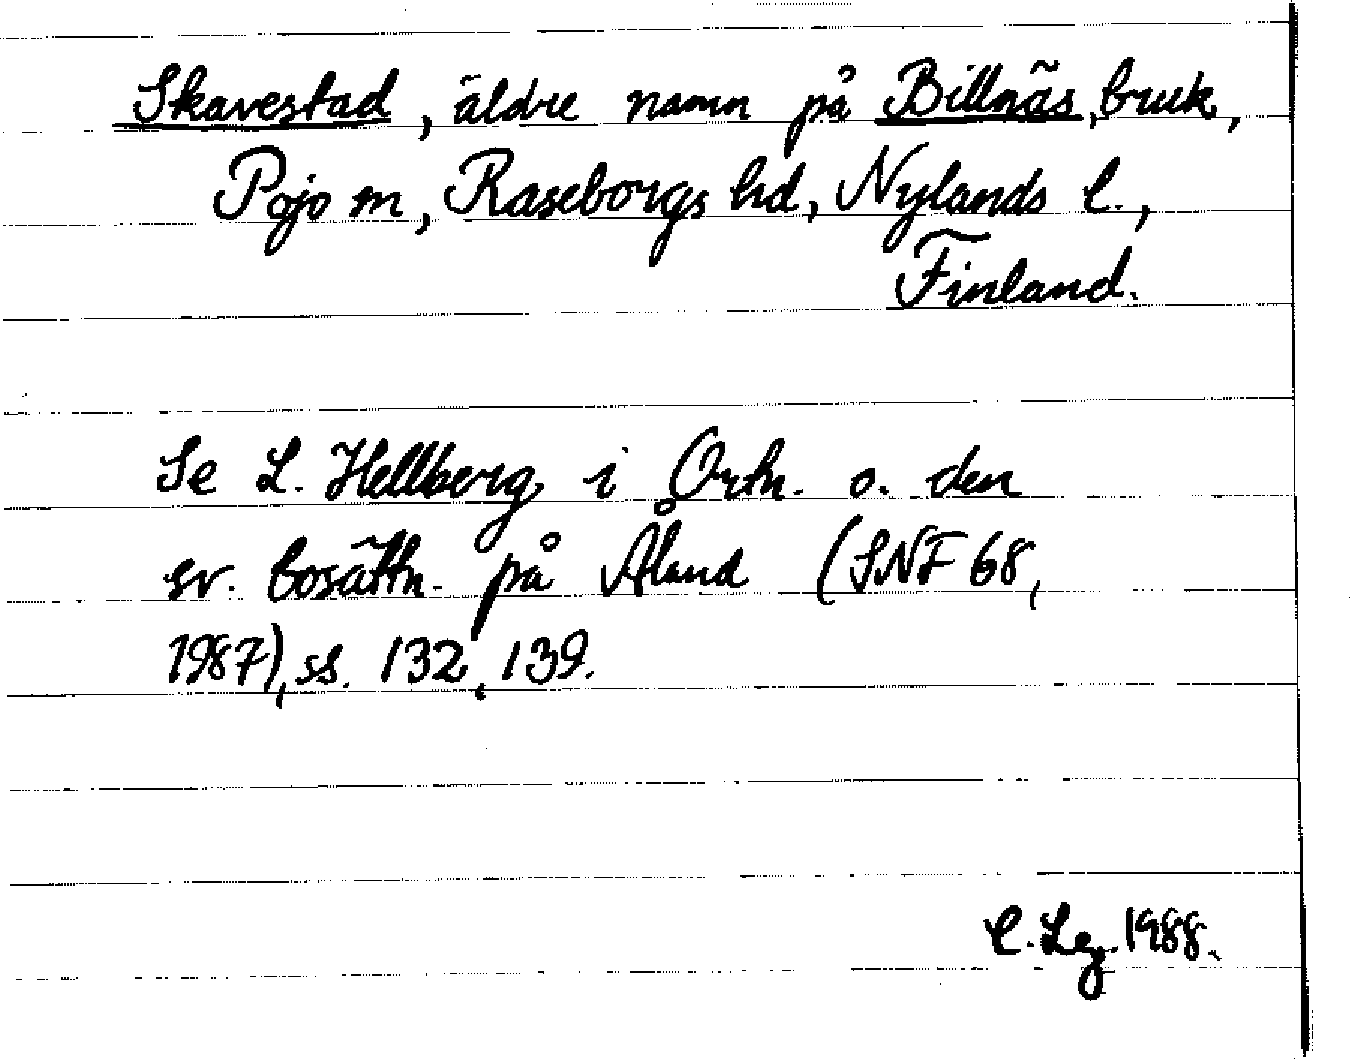 Skavestad, äldre namn på Billnäs, bruk,
Pojo m, Raseborgs hd, Nylands l.,
Finland.
Se L. Hellberg i Ortn. o. den
sv. bosättn. på Åland (SNF 68,
1987), ss. 132, 139.
1988.